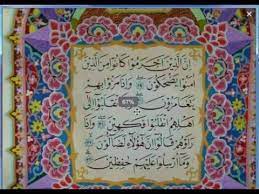 إِنَّ الَّذِينَ أَجْرَمُوا كَانُوا مِنَ الَّذِينَ
آمَنُوا يَضْحَكُونَ وَإِذَا مَرُّوا بِهِمْ
يَتَغَامَزُونَ وَإِذَا انْقَلَبُوا إِلَى
أَهْلِهِمُ انْقَلَبُوا فَكِهِينَ وَإِذَا
رَأَوْهُمْ قَالُوا إِنَّ هَؤُلَاءِ لَضَالُّونَ
وَمَا أُرْسِلُوا عَلَيْهِمْ حَفِظِينَ